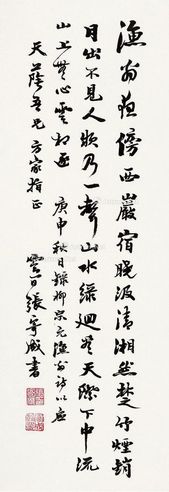 漁翁夜傍西巖宿曉汲清湘然楚竹煙銷
日出不見人欸乃一聲山水綠迴看天際下中流
山上無心雲相逐 庚申秋日錄柳宗元漁翁詩以應
天蔭吾兄方家指正
雲間張寧威書